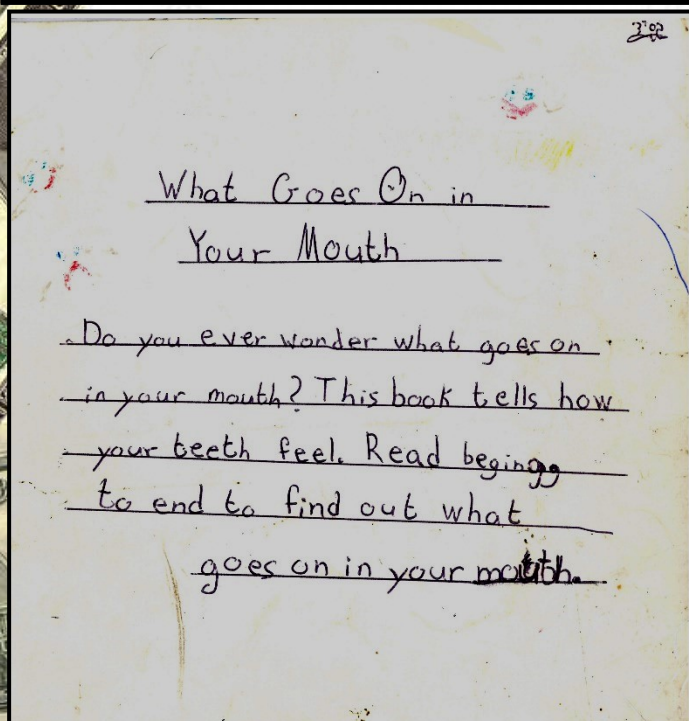 What Goes On in
Your Mouth
Do you ever wonder what goes on
in your mouth? This book tells how
your teeth feel. Read begingg
to end to find out what
goes on in your mouth.